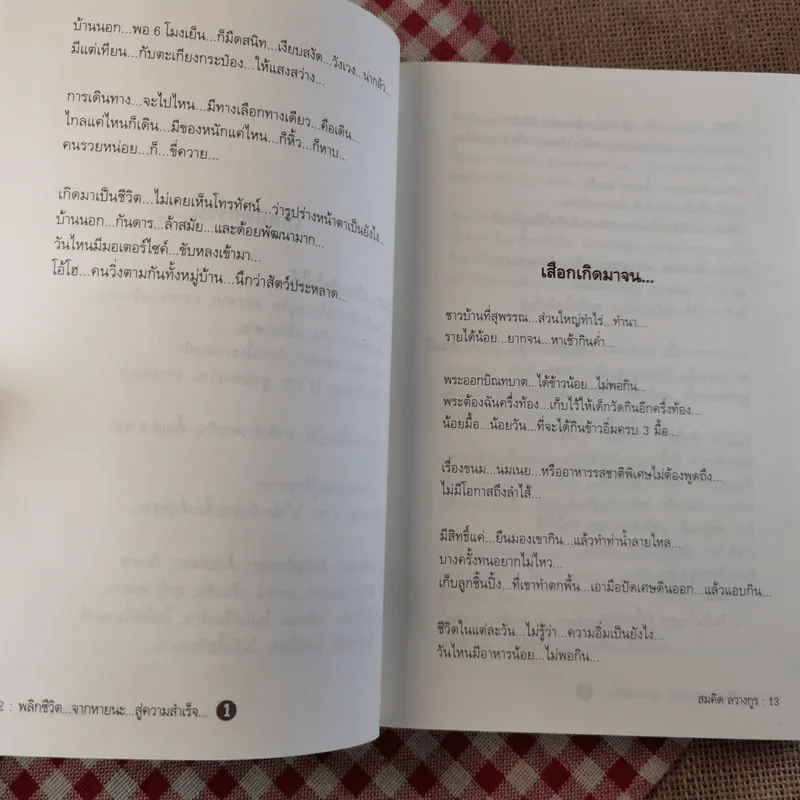 บ้านนอก...พอ 6 โมงเย็น...ก็มืดสนิท...เงียบสงัด...วังเวง...น่ากลัว...
มีแต่เทียน...กับตะเกียงกระป๋อง...ให้แสงสว่าง...
การเดินทาง...จะไปไหน...มีทางเลือกทางเดียว...คือเดิน...
ไกลแค่ไหนก็เดิน...มีของหนักแค่ไหน...ก็หิ้ว...ก็หาบ...
คนรวยหน่อย...ก็...ขี่ควาย...
เกิดมาเป็นชีวิต...ไม่เคยเห็นโทรทัศน์...ว่ารูปร่างหน้าตาเป็นยังไง...
บ้านนอก...กันดาร...ล้าสมัย...และด้อยพัฒนามาก...
วันไหนมีมอเตอร์ไซค์...ขับหลงเข้ามา...
โอ้โฮ...คนวิ่งตามกันทั้งหมู่บ้าน...นึกว่าสัตว์ประหลาด...
2 : พลิกชีวิต...จากหายนะ...สู่ความสำเร็จ... 1
เสือกเกิดมาจน...
ชาวบ้านที่สุพรรณ...ส่วนใหญ่ทำไร่...ทำนา...
รายได้น้อย...ยากจน...หาเช้ากินค่ำ...
พระออกบิณฑบาต...ได้ข้าวน้อย...ไม่พอกิน...
พระต้องฉันครึ่งท้อง...เก็บไว้ให้เด็กวัดกินอีกครึ่งท้อง...
น้อยมื้อ...น้อยวัน...ที่จะได้กินข้าวอิ่มครบ 3 มื้อ...
เรื่องขนม...นมเนย...หรืออาหารรสชาติพิเศษไม่ต้องพูดถึง...
ไม่มีโอกาสถึงลำไส้...
มีสิทธิ์แค่...ยืนมองเขากิน...แล้วทำท่าน้ำลายไหล...
บางครั้งทนอยากไม่ไหว...
เก็บลูกชิ้นปิ้ง...ที่เขาทำตกพื้น...เอามือปัดเศษดินออก...แล้วแอบกิน...
ชีวิตในแต่ละวัน...ไม่รู้ว่า...ความอิ่มเป็นยังไง...
วันไหนมีอาหารน้อย...ไม่พอกิน...
สมคิด ลวางกูร : 13